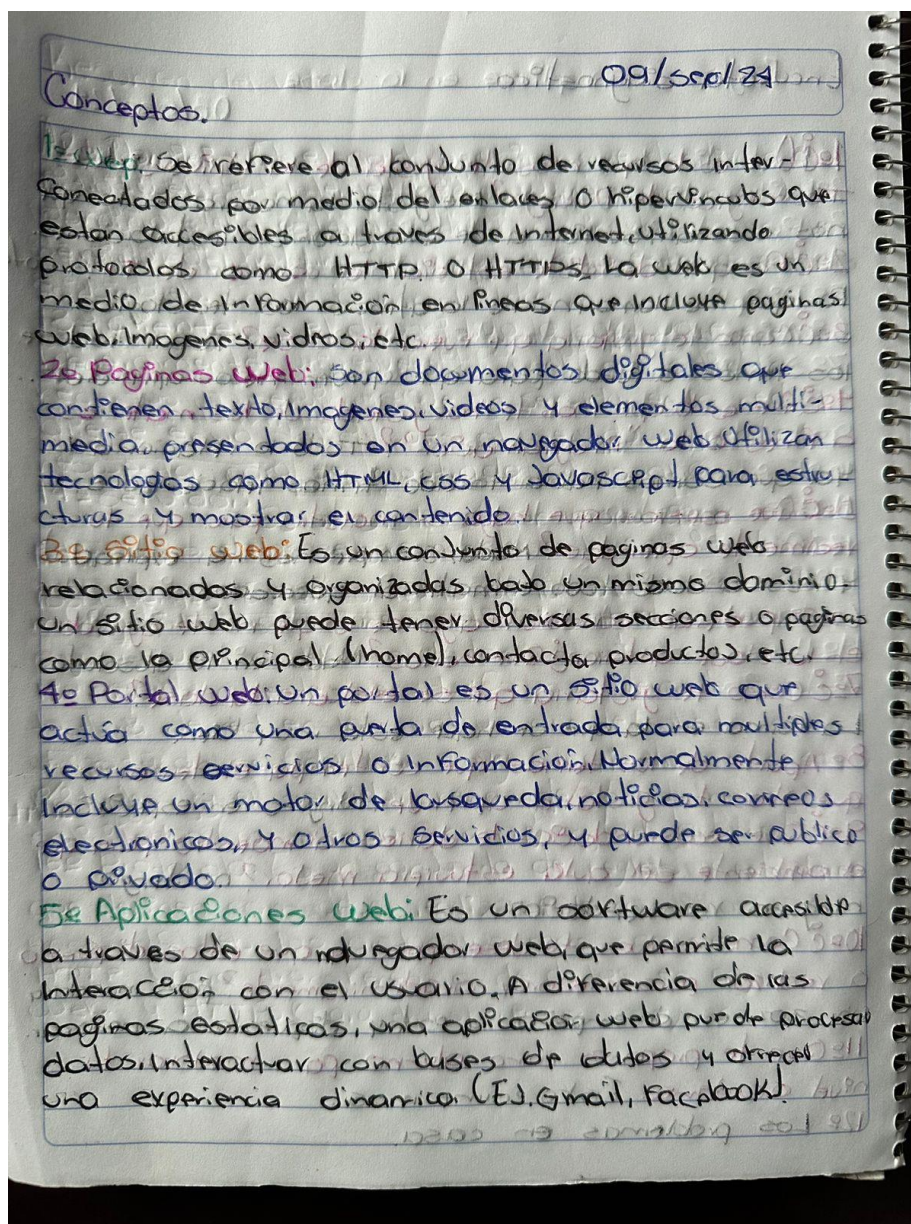 09/sep/24
Conceptos.
1º Web: Se refiere al conjunto de recursos inter-
conectados por medio del enlaces o hipervinculos que
estan accesibles a traves de Internet, utilizando
protocolos como HTTP O HTTPS, La web es un
medio de Información en líneas que incluye paginas
web, Imagenes, vidros, etc.
2º Paginas Web: Son documentos digitales que
contienen texto, imagenes, videos y elementos multi-
media, presentados en un navegador web Utilizan
tecnologias como HTML, CSS y Javascript para estru-
cturas y mostrar el contenido.
3º Sitio web: Es un conjunto de paginas web
relacionados y organizadas bajo un mismo dominio.
un sitio web puede tener diversas secciones o paginas
como la principal (home), contacto, productos, etc.
4º Portal web: un portal es un sitio web que
actúa como una puerta de entrada para multiples
recursos, servicios, o Información, Normalmente
incluye un motor de busqueda, noticias, correos
electronicos, y otros servicios, y puede ser publico
o privado.
5º Aplicaciones web: Es un software accesible
a traves de un navegador web, que permite la
interacción con el usuario. A diferencia de las
paginas estaticas, una aplicación web puede procesar
datos, interactuar con bases de datos y ofrecer
una experiencia dinamica (EJ. Gmail, Facebook)